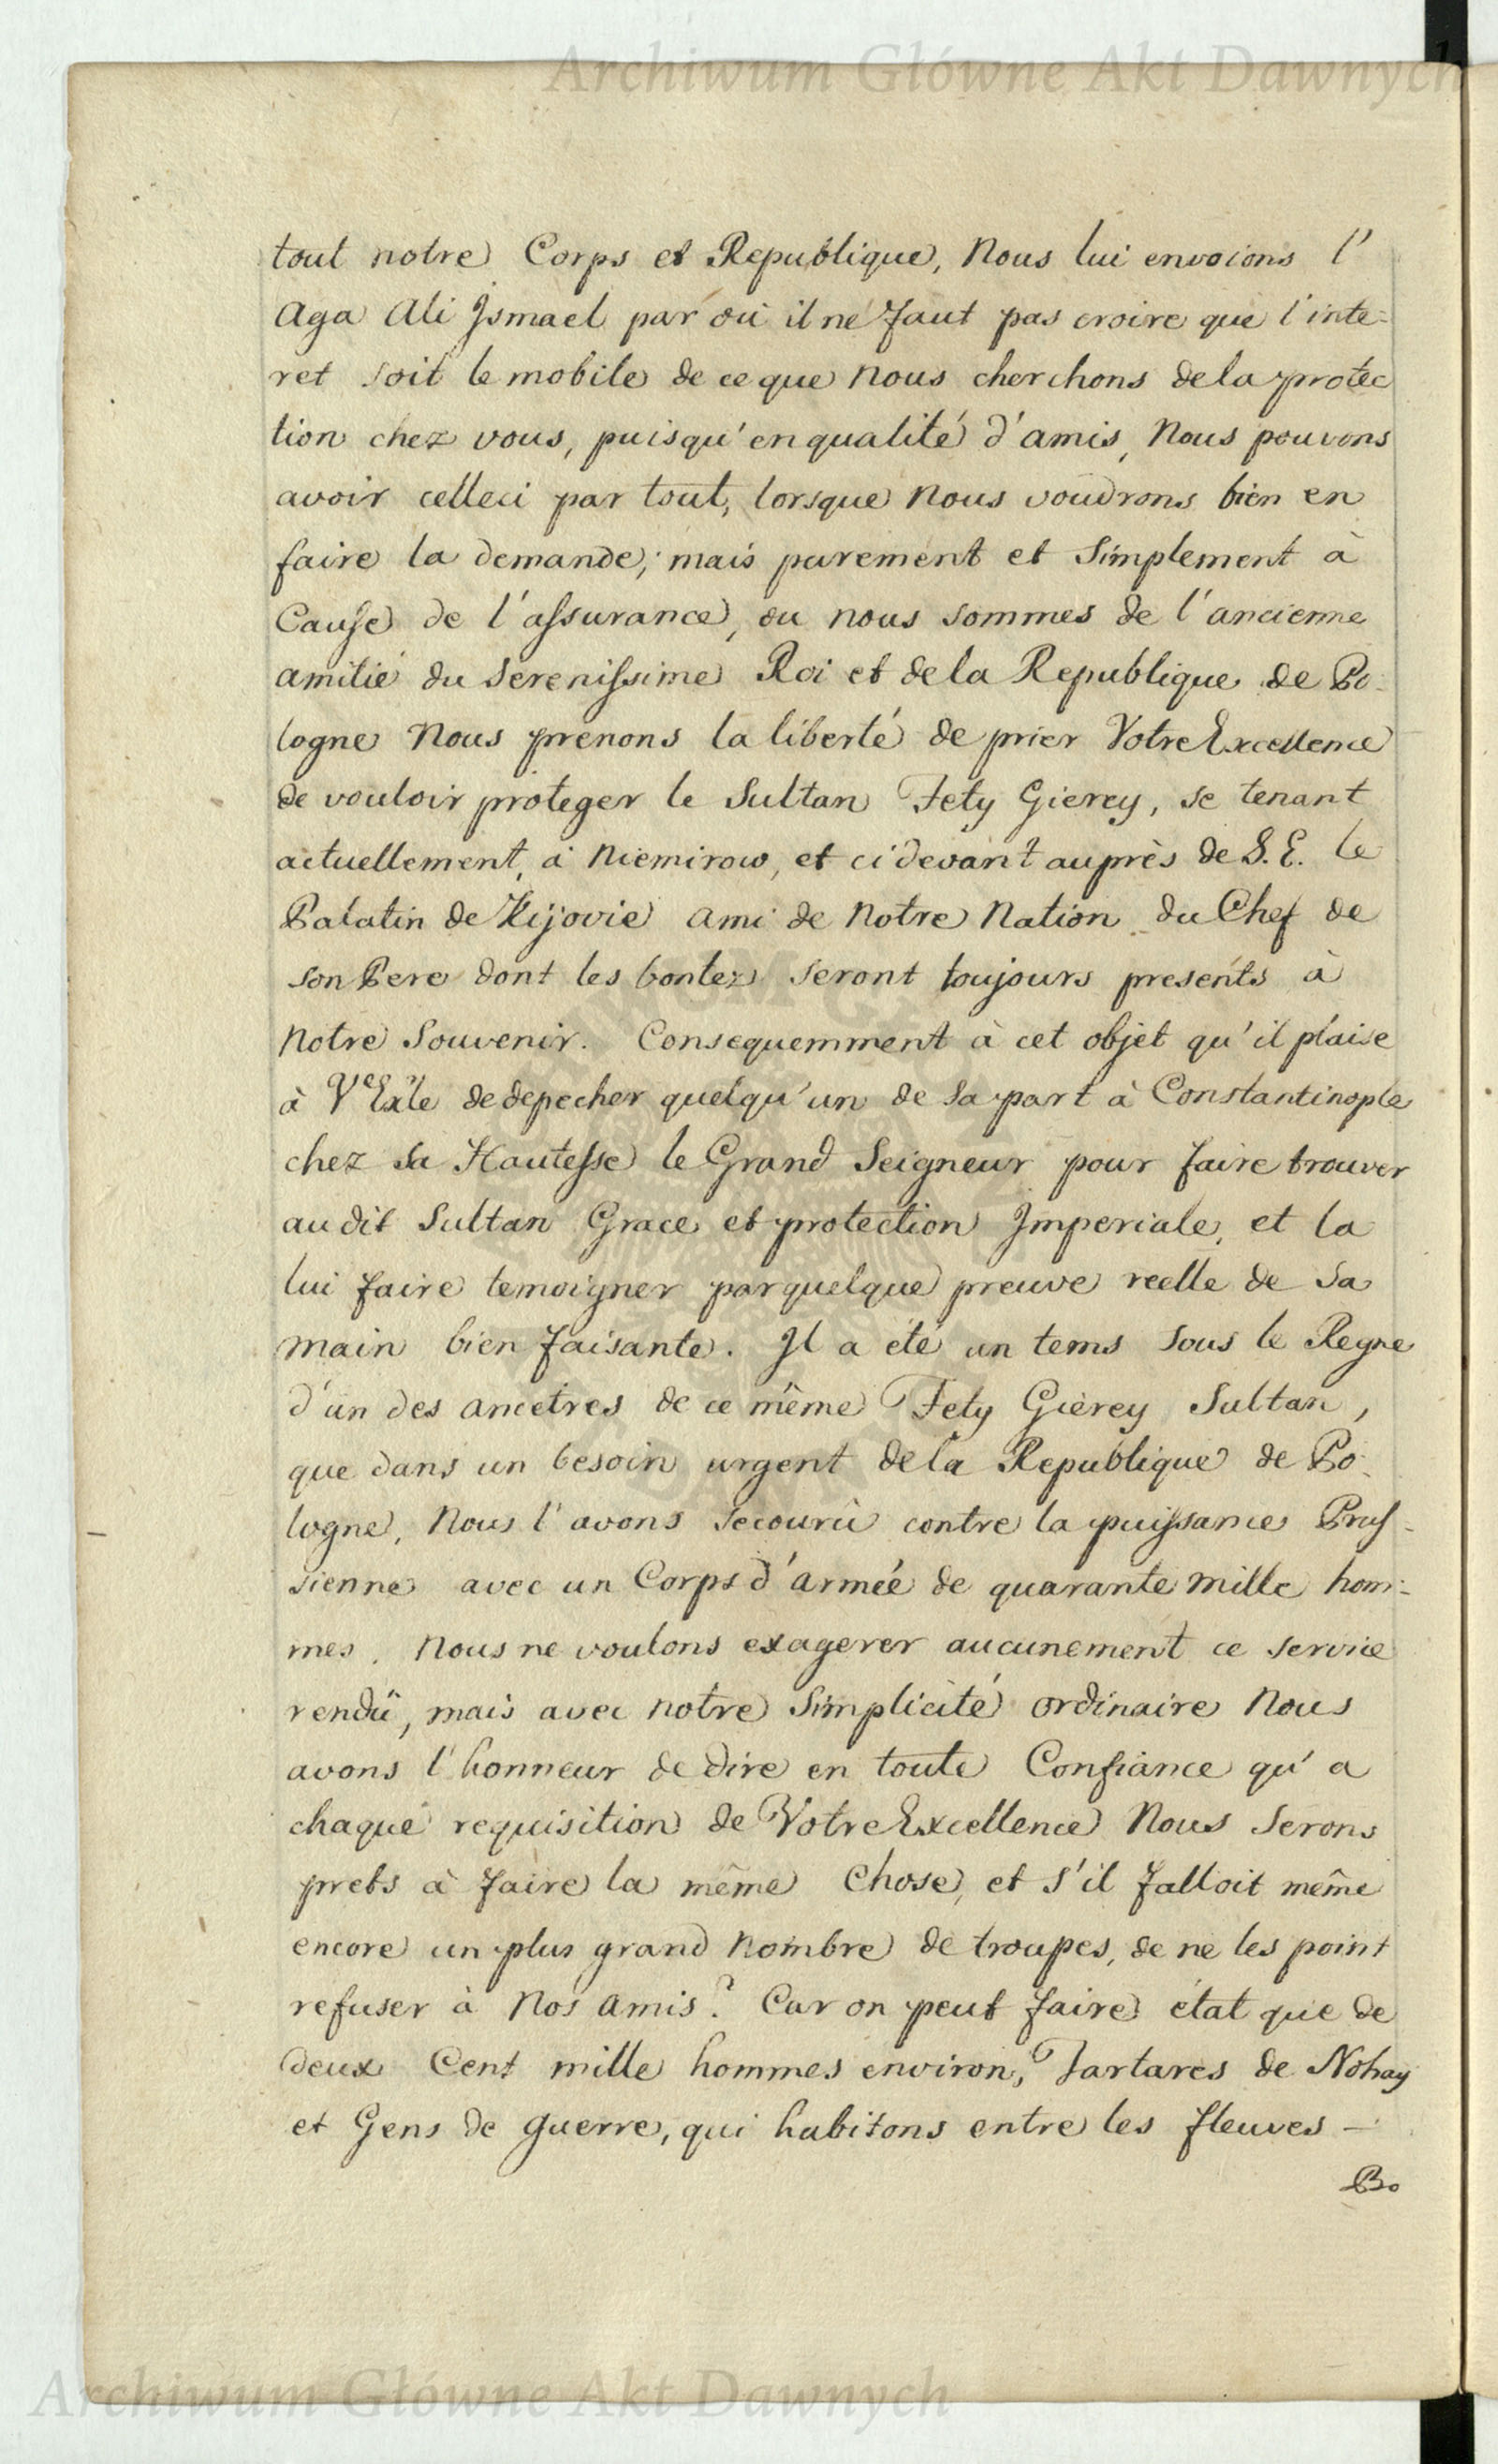 Archiwum Główne Akt Dawnych
tout notre Corps et Republique, Nous lui envoions l'
Aga Ali Ismael par où il ne faut pas croire que l'inte-
ret soit le mobile de ce que Nous cherchons de la protec
tion chez vous, puisqu'en qualité d'amis, Nous pouvons
avoir celleci par tout, lorsque Nous voudrons bien en
faire la demande; mais purement et Simplement à
Cause de l'assurance, ou nous sommes de l'ancienne
amitié du Serenissime Roi et de la Republique de Po-
logne Nous prenons la liberté de prier Votre Excellence
de vouloir proteger le Sultan Fety Gierey, se tenant
actuellement à Niemirow, et cidevant auprès de S. E. le
Palatin de Kijovie ami de Notre Nation du Chef de
son Pere dont les bontez seront toujours presents à
Notre Souvenir. Consequemment à cet objet qu'il plaise
à Vᵉ Exlle de depecher quelqu'un de sa part à Constantinople
chez sa Hautesse le Grand Seigneur pour faire trouver
au dit Sultan Grace et protection Imperiale, et la
lui faire temoigner par quelque preuve reelle de Sa
main bien faisante. Il a été un tems sous le Regne
d'un des ancetres de ce même Fety Gierey Sultan,
que dans un besoin urgent de la Republique de Po-
logne, Nous l'avons secourû contre la puissance Prus-
sienne avec un Corps d'armée de quarante mille hom-
mes. Nous ne voulons exagerer aucunement ce service
rendü, mais avec notre Simplicité ordinaire Nous
avons l'honneur de dire en toute Confiance qu'a
chaque requisition de Votre Excellence Nous Serons
prets à faire la même Chose, et s'il falloit même
encore un plus grand Nombre de troupes, de ne les point
refuser à Nos amis? Car on peut faire état que de
deux Cent mille hommes environ, Tartares de Nohay
et Gens de guerre, qui habitons entre les fleuves -
Bo
Archiwum Główne Akt Dawnych